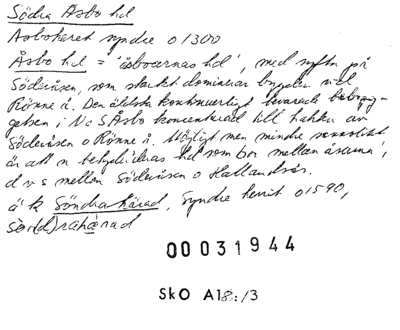 Södra Åsbo hd
Asboheret syndre o 1300
Åsbo hd = 'åsboarnas hd', med syftn på
Söderåsen, som starkt dominerar bygden vid
Rönne å. Den äldsta kontinuerligt bevarade bebyg-
gelsen i N o S Åsbo koncentrerad till trakten av
Söderåsen o Rönne å. Möjligt men mindre sannolikt
är att n betyder 'deras hd som bor mellan åsarna',
d v s mellan Söderåsen o Hallandsås.
ä k Söndra härad, Syndre herrit o 1590,
sör(d)rahärad
00031944
SkO A18:/3